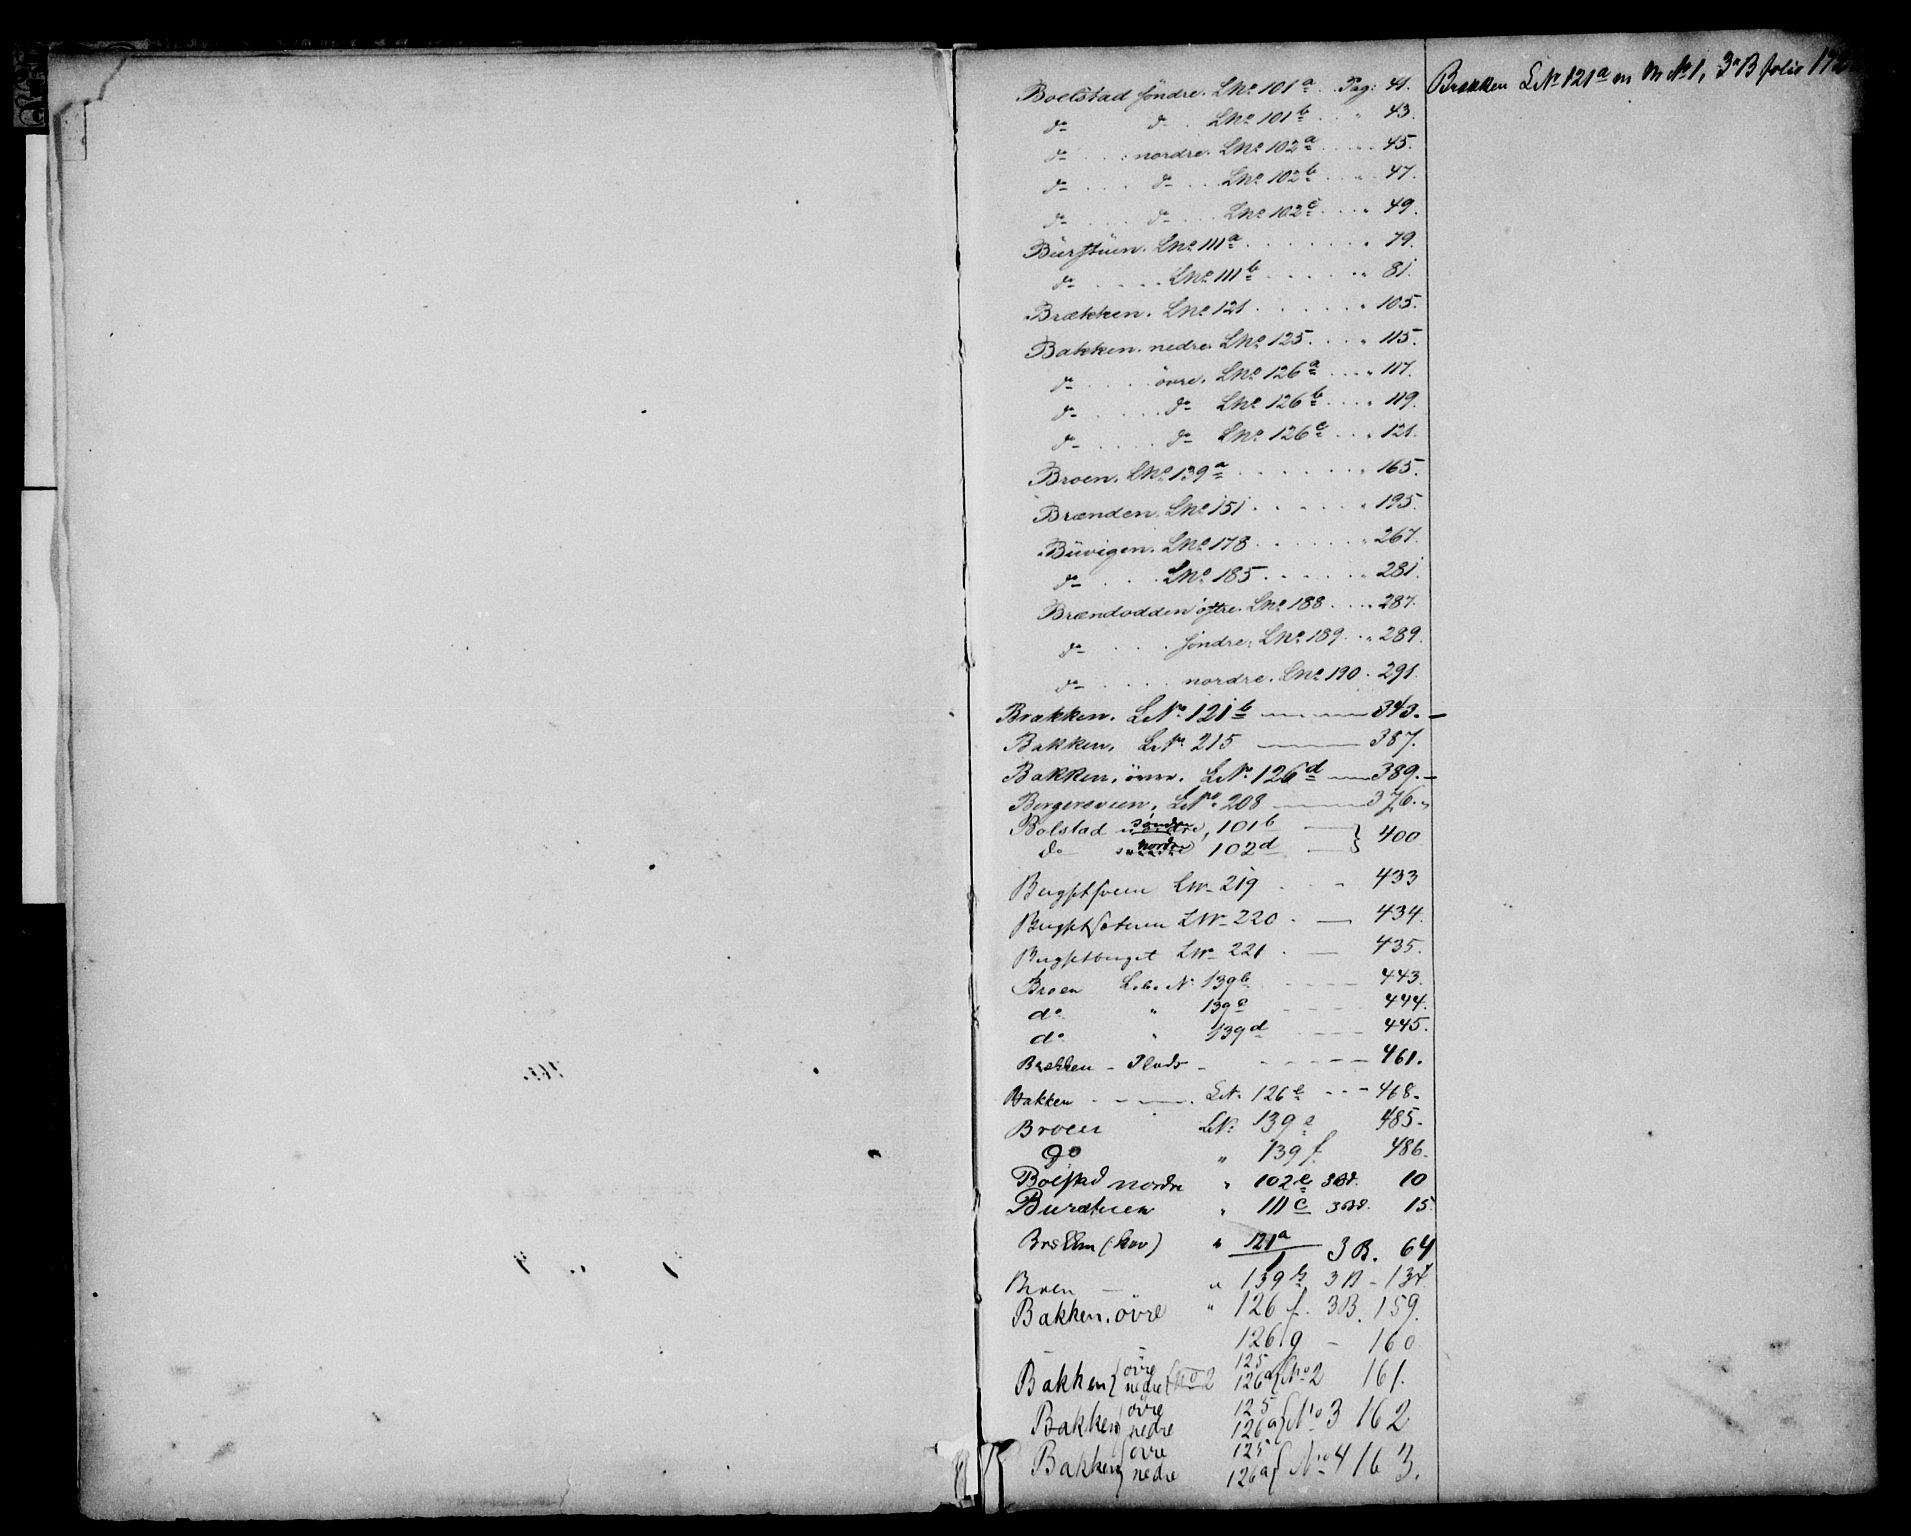 Boelstad søndre. LNo 101a . Pag: 41.
do do . LNo 101b . . " 43.
do . . . nordre. LNo 102a . . . . . 45.
do . . . . do . . . LNo 102b . . . " . 47.
do . . . . do . . . LNo 102c . . . . " 49.
Burstuen. LNo 111a . . . . . . . " 79.
do . . . . . LNo 111b . . . . . . " 81.
Brækken. LNo 121 . . . . . . " 105.
Bakken. nedre. LNo 125. . . . " 115.
do . . . . . øvre. LNo 126a . . . . " 117.
do . . . . . do LNo 126b . . . . " 119.
do . . . . . do LNo 126c . . . " 121.
Broen. LNo 139a . . . . . . " 165.
Brænden. LNo 151 . . . . . . " 195.
Buvigen. LNo 178 . . . . . . " 267.
do . . . . LNo 185 . . . . . . " 281.
Brændodden østre. LNo 188 . . . . 287.
do . . . søndre. LNo 189 . . " 289.
do . . . . . nordre. LNo 190 . 291.
Brækken. LNo 121b 343. —
Bakken. LNo 215 387.
Bakken, övre. LNo 126d 389. —
LNo 208 376. "
Bolstad søndre, 101b } 400
do nordre 102d
LNo 219 . . - 433
LNo 220 . — 434.
LNo 221 . — 435.
Broen L.b. No 139b - - - - 443.
do " 139c - - - - 444.
do " 139d - - - - 445.
Brækken - Plads - - - - - - - 461.
Bakken - - - - . LNo 126e - - - 468.
Broen LNo 139e 485.
Do " 139f. 486.
Bolstad nordre " 102e 3Bd. 10
Burstuen " 111c 3Bd. 15.
" 121a/1 3B. 64
Broen — " 3B - 134.
Bakken. övre " 126 f. 3B. 159.
126 g - 160
Bakken { övre nedre { No 2 125 126a { No 2 161.
Bakken { övre nedre 125 126a { No 3 162
Bakken { övre nedre 125 126a { No 4 163.
Brækken LNo 121a No 1, 3B folio